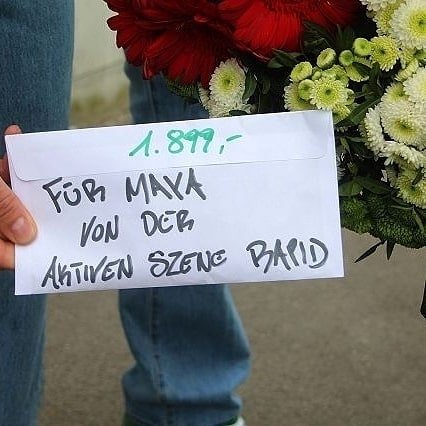 1.899,-
FÜR MAYA
VON DER
AKTIVEN SZENE RAPID